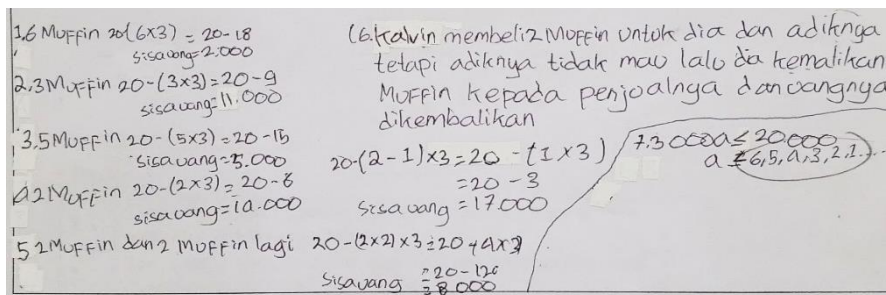 1.6 Muffin 20-(6x3) = 20-18
sisa uang=2.000
2.3 Muffin 20-(3x3)=20-9
sisa uang=11.000
3.5 Muffin 20-(5x3)=20-15
sisa uang=5.000
4 2 Muffin 20-(2x3)=20-6
sisa uang=14.000
5 2 Muffin dan 2 muffin lagi 20-(2x2)x3=20-4x3
=20-12
sisa uang =8.000
(6. Kalvin membeli 2 Muffin untuk dia dan adiknya
tetapi adiknya tidak mau lalu dia kemalikan
Muffin kepada penjualnya dan uangnya
dikembalikan
20-(2-1)x3=20-(1x3)
=20-3
sisa uang =17.000
7.3000a≤20.000
a=6,5,4,3,2,1...